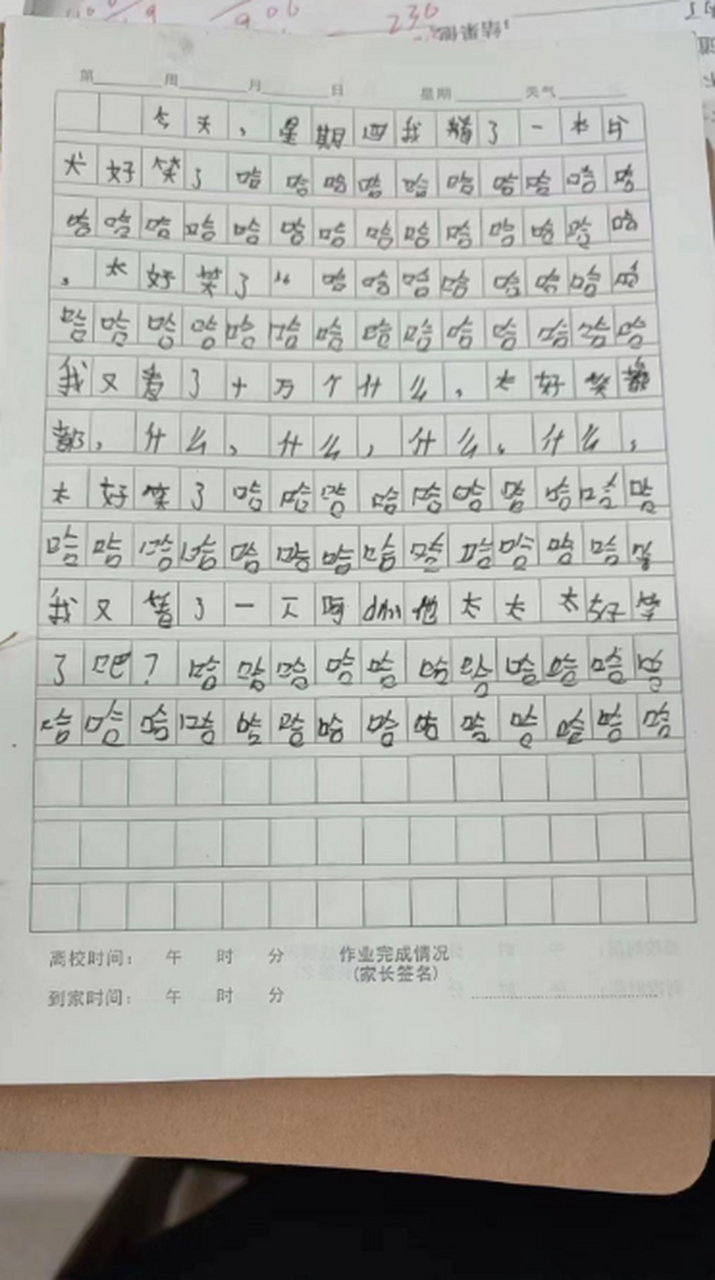 第 周 月 日 星期 天气
今天,星期四我看了一本
太好笑了哈哈哈哈哈哈哈哈哈哈
哈哈哈哈哈哈哈哈哈哈哈哈哈哈
,太好笑了“哈哈哈哈哈哈哈哈
哈哈哈哈哈哈哈哈哈哈哈哈哈哈
我又看了十万个什么,太好笑都
都,什么,什么,什么,什么,
太好笑了哈哈哈哈哈哈哈哈哈哈
哈哈哈哈哈哈哈哈哈哈哈哈哈哈
我又看了一 阿 他太太太好笑
了吧?哈哈哈哈哈哈哈哈哈哈哈
哈哈哈哈哈哈哈哈哈哈哈哈哈哈
离校时间: 午 时 分 作业完成情况
(家长签名)
到家时间: 午 时 分